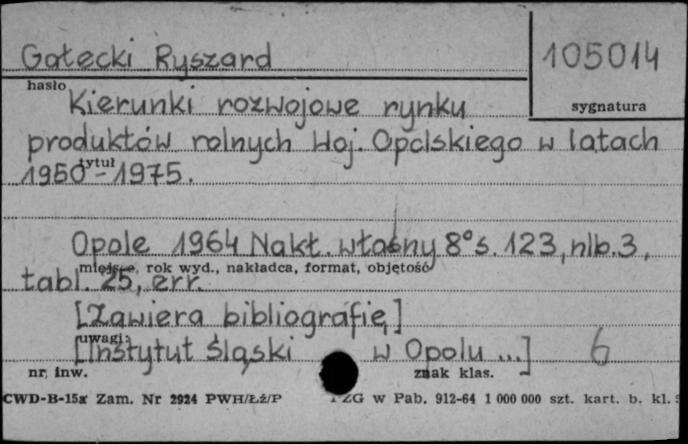 Gałecki Ryszard 105014
hasło
sygnatura
Kierunki rozwojowe rynku
produktów rolnych Woj. Opolskiego w latach
tytuł
1950-1975.
Opole 1964 Nakł. własny 8° s. 123, nlb. 3,
miejsce, rok wyd., nakładca, format, objętość
tabl. 25, err.
[Zawiera bibliografię]
uwagi:
[Instytut Śląski w Opolu ...] 6
nr. inw. znak klas.
CWD-B-15a Zam. Nr 2924 PWH/ŁŹ/P PZG w Pab. 912-64 1 000 000 szt. kart. b. kl.